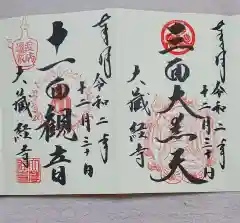 奉拝
令和二年
十二月三十日
三面大黒天
大蔵経寺
奉拝
令和二年
十二月三十日
十一面観音
大蔵経寺